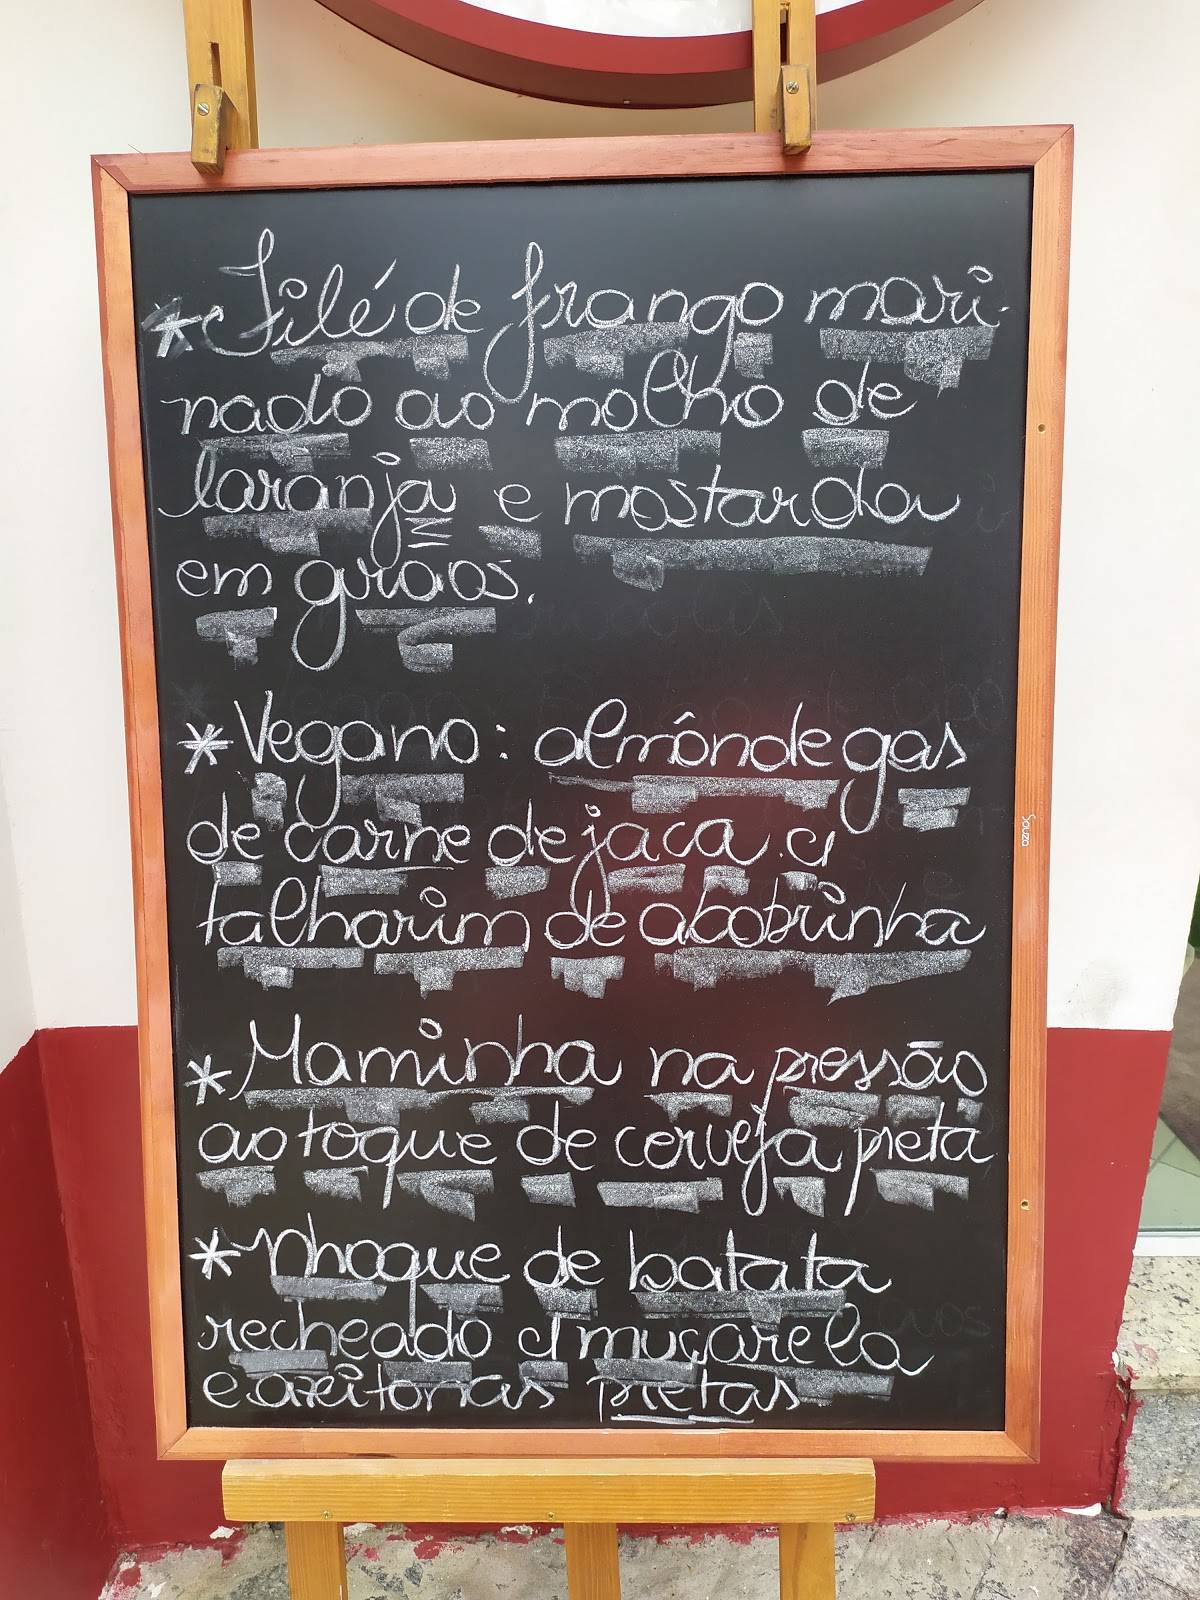 * Filé de frango mari-
nado ao molho de
laranja e mostarda
em grãos.
* Vegano: almôndegas
de carne de jaca c/
talharim de abobrinha
* Maminha na pressão
ao toque de cerveja preta
* Nhoque de batata
recheado c/ muçarela
e azeitonas pretas
Souza